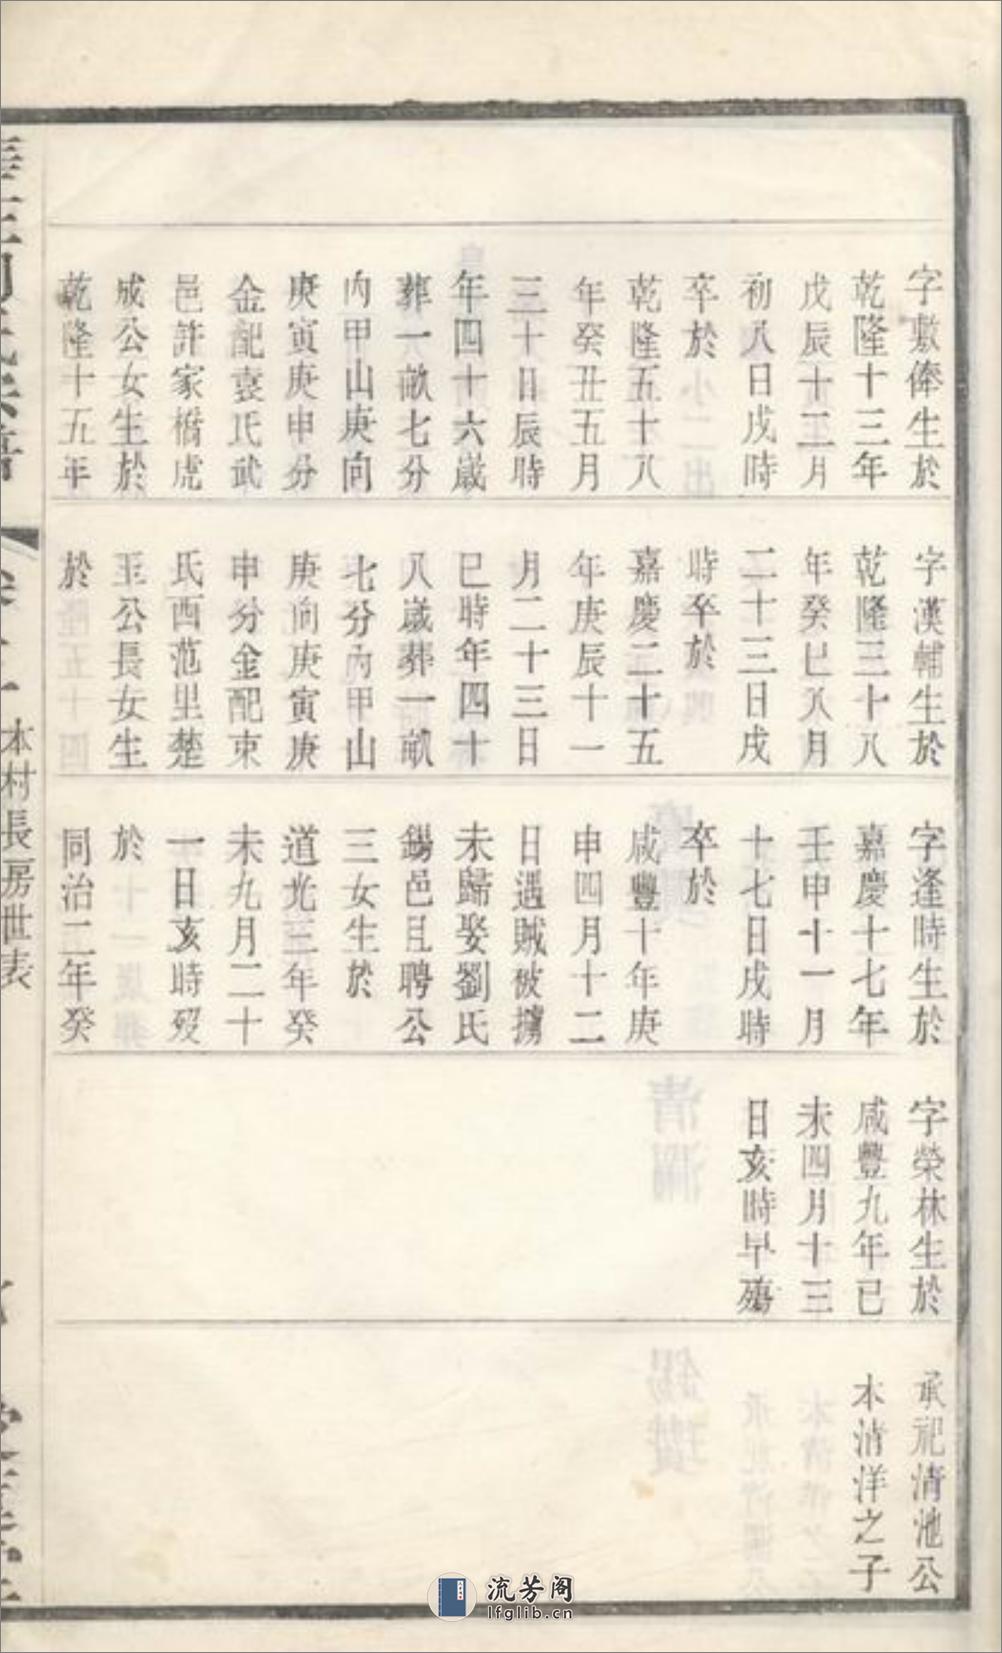 字敷俸生於
乾隆十三年
戊辰十二月
初八日戌時
卒於
乾隆五十八
年癸丑五月
三十日辰時
年四十六歲
葬一畝七分
內甲山庚向
庚寅庚申分
金配袁氏武
邑許家橋虎
成公女生於
乾隆十五年
字漢輔生於
乾隆三十八
年癸巳八月
二十三日戌
時卒於
嘉慶二十五
年庚辰十一
月二十三日
巳時年四十
八歲葬一畝
七分內甲山
庚向庚寅庚
申分金配束
氏西范里楚
玉公長女生
於
字逢時生於
嘉慶十七年
壬申十一月
十七日戌時
卒於
咸豐十年庚
申四月十二
日遇賊被擄
未歸娶劉氏
錫邑且聘公
三女生於
道光三年癸
未九月二十
一日亥時歿
於
同治二年癸
字榮林生於
咸豐九年已
未四月十三
日亥時早殤
承祀清池公
本清洋之子
本村長房世表
流芳阁
lfglib.cn